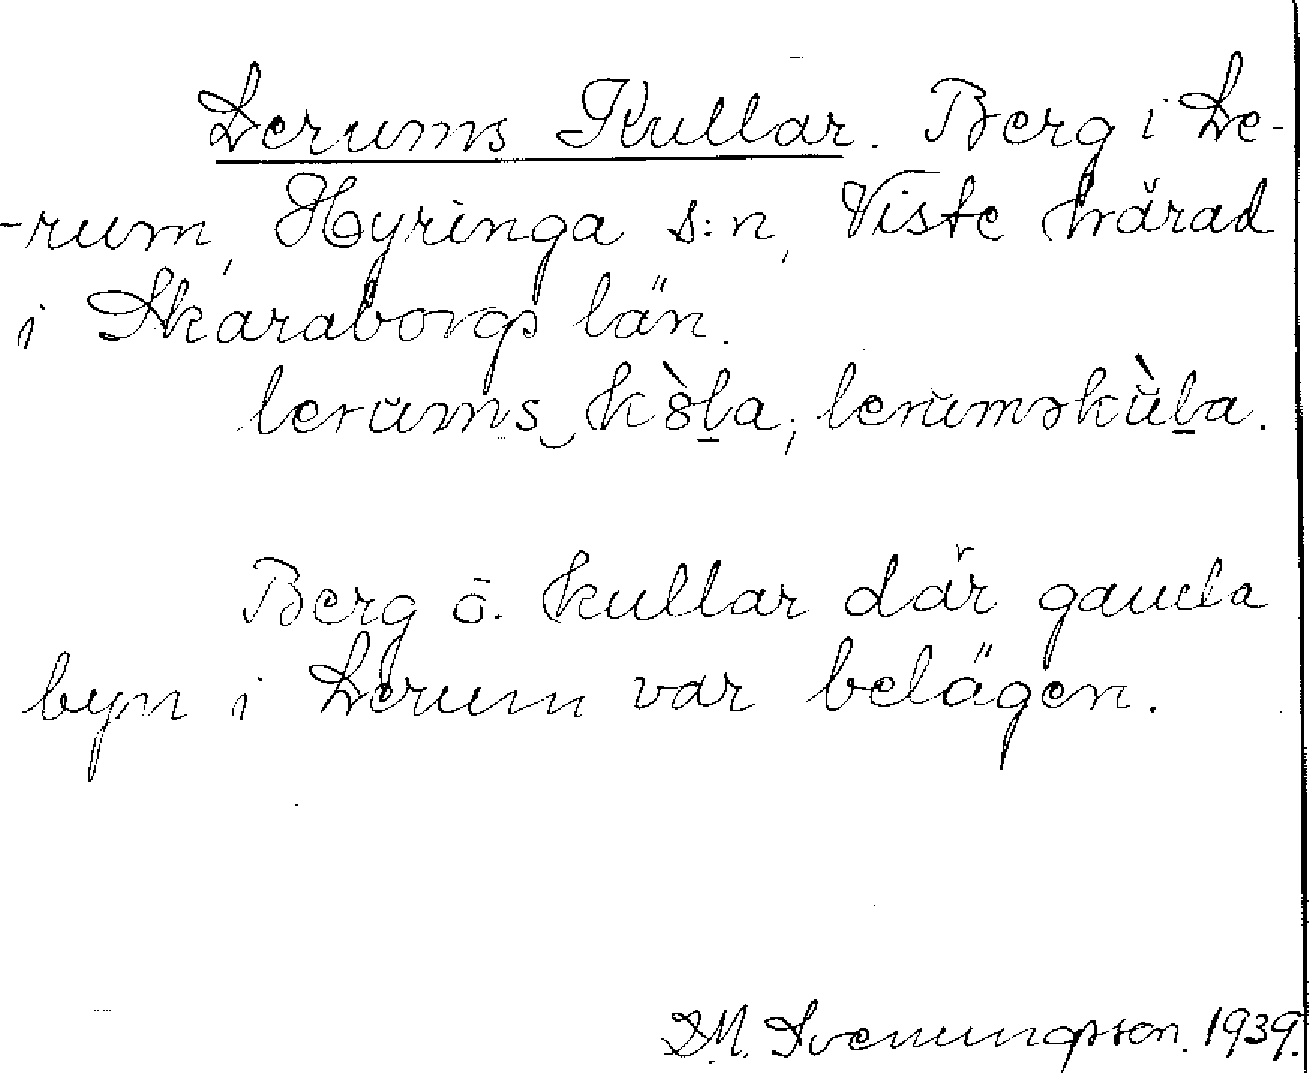 Lerums Kullar. Berg i Le-
-rum, Hyringa s:n, Viste härad
i Skaraborgs län.
lerùms kòl̠a, lerùmskùl̠a.
Berg o. kullar där gamla
byn i Lerum var belägen.
D.M. Svenungsson. 1939.